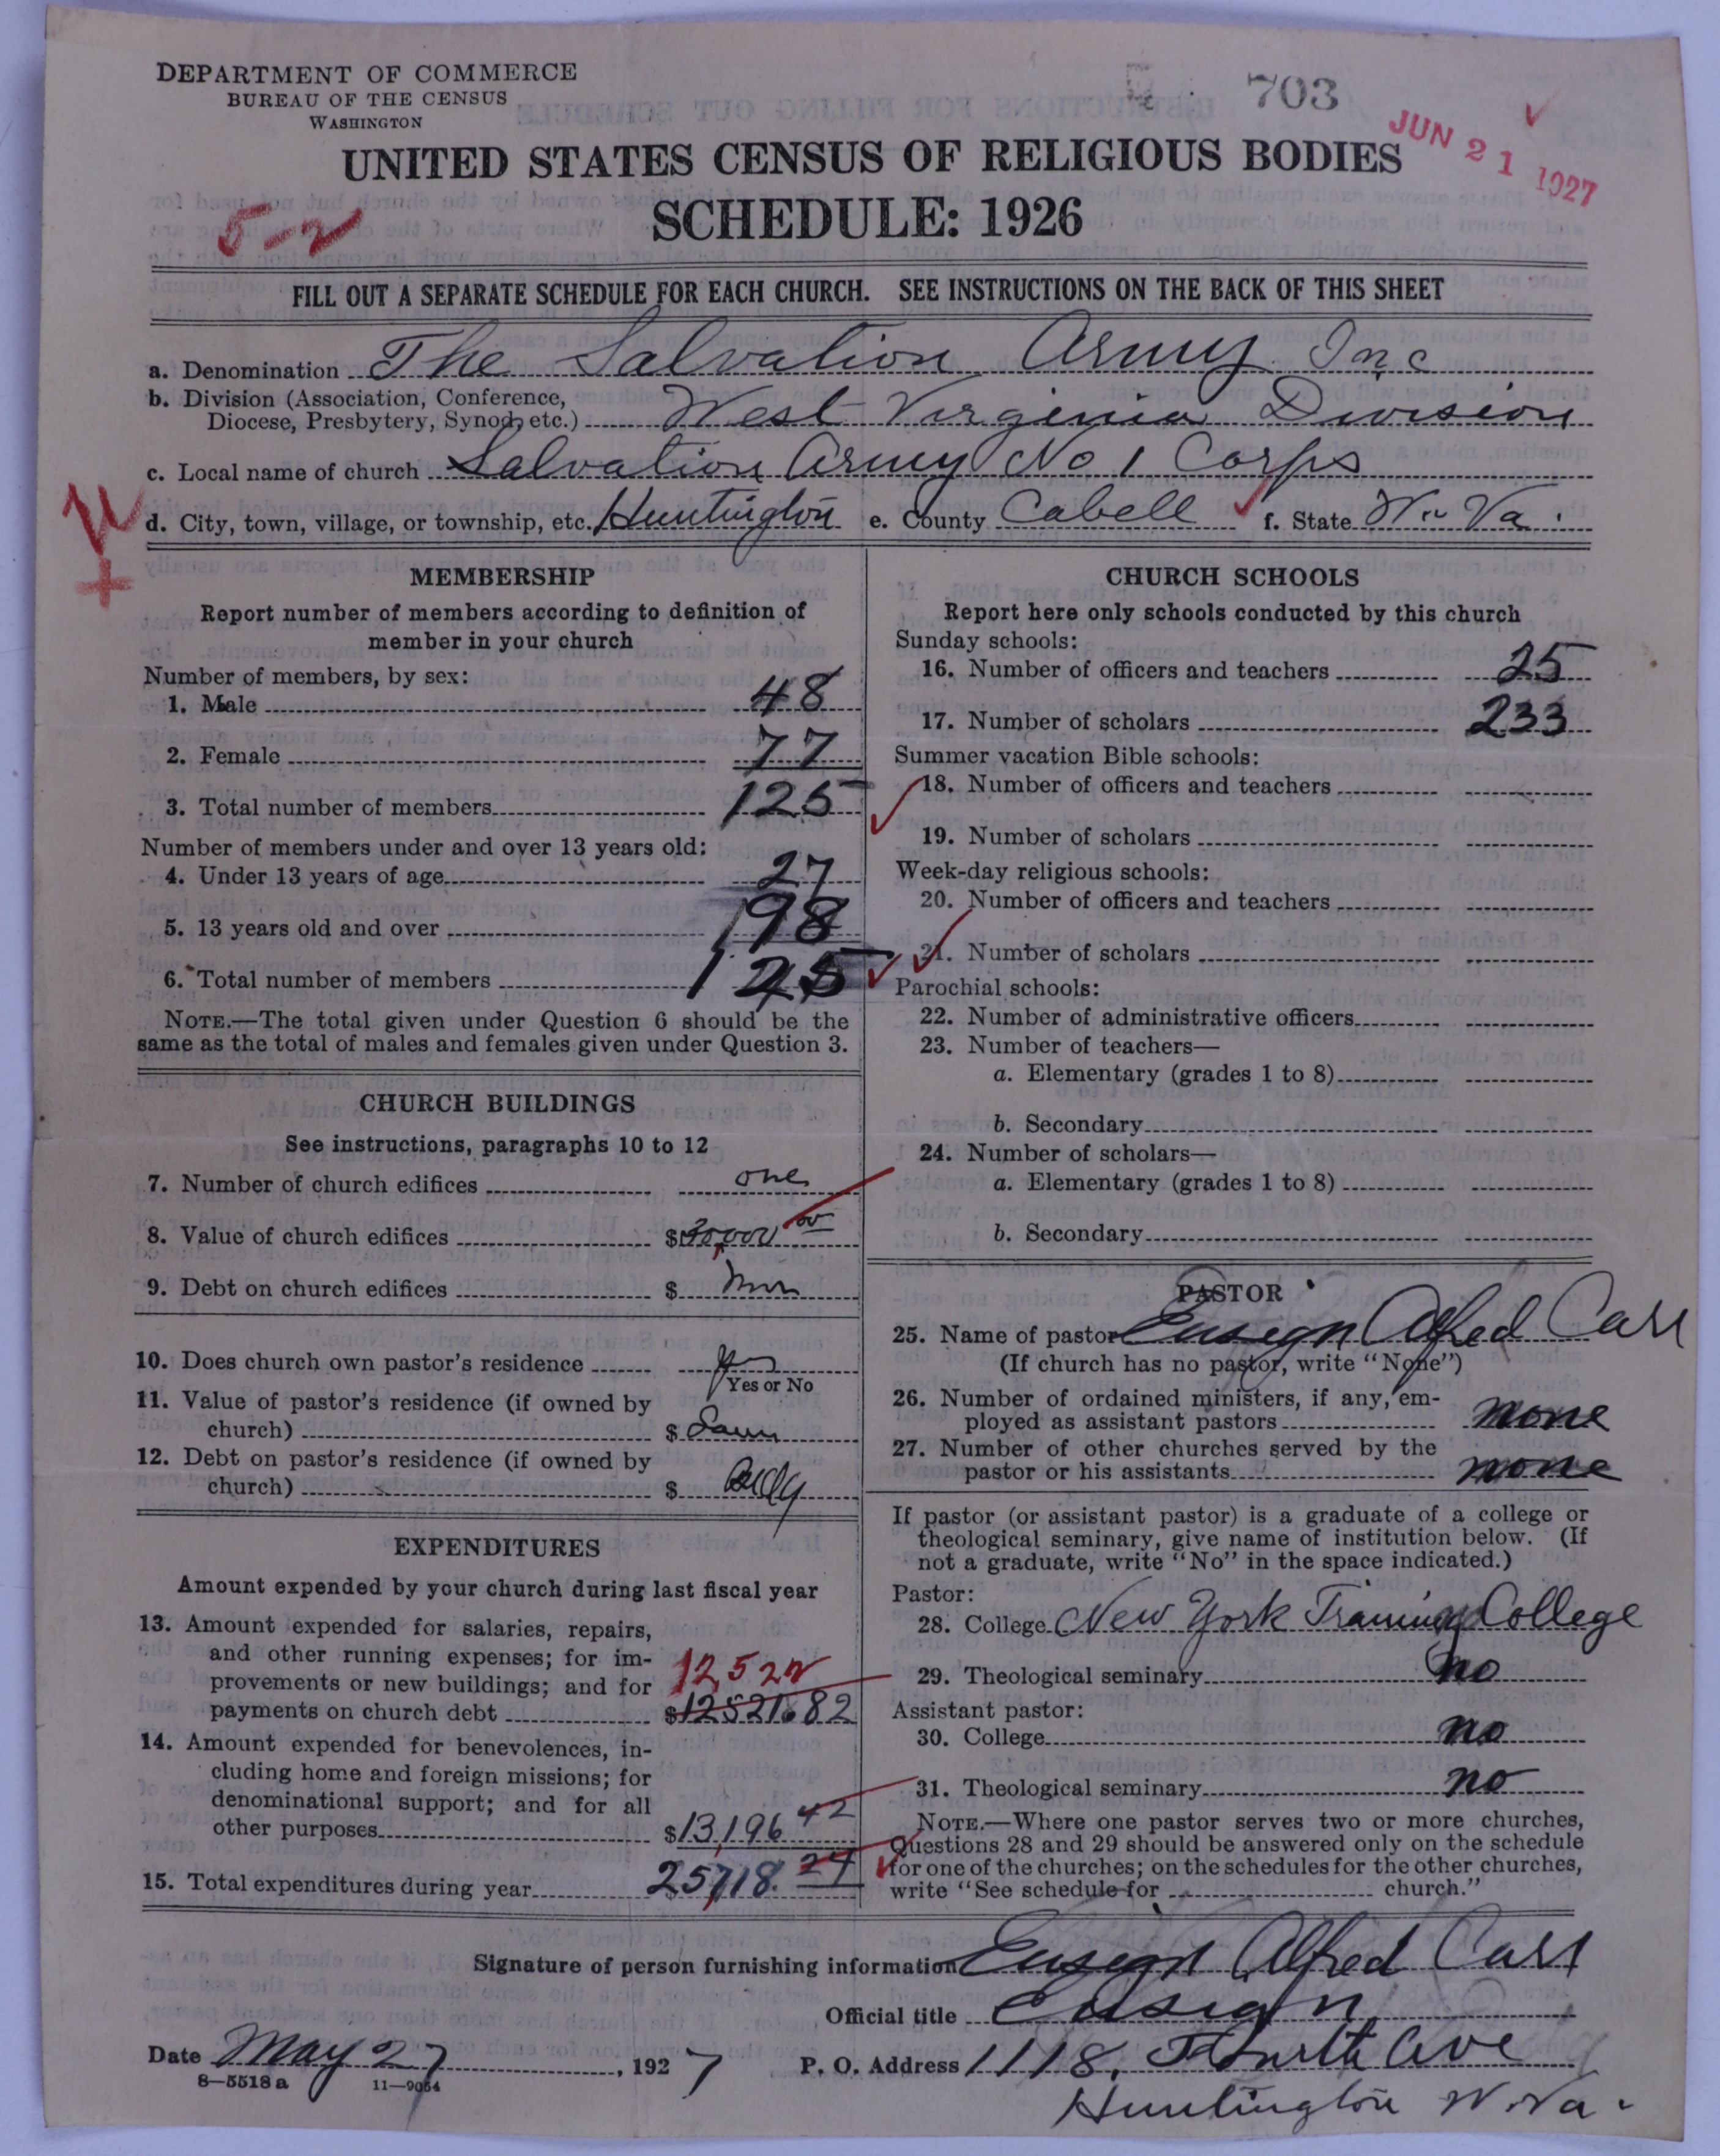 DEPARTMENT OF COMMERCE
BUREAU OF THE CENSUS
WASHINGTON
703
JUN 21 1927
UNITED STATES CENSUS OF RELIGIOUS BODIES
5-2
SCHEDULE: 1926
FILL OUT A SEPARATE SCHEDULE FOR EACH CHURCH. SEE INSTRUCTIONS ON THE BACK OF THIS SHEET
a. Denomination The Salvation Army Inc
b. Division (Association, Conference,
Diocese, Presbytery, Synod, etc.) West Virginia Division
c. Local name of church Salvation Army No 1 Corps
d. City, town, village, or township, etc. Huntington e. County Cabell f. State W. Va.
MEMBERSHIP
Report number of members according to definition of
member in your church
Number of members, by sex:
1. Male 48
2. Female 77
3. Total number of members 125
Number of members under and over 13 years old:
4. Under 13 years of age 27
5. 13 years old and over 98
6. Total number of members 125
NOTE.—The total given under Question 6 should be the
same as the total of males and females given under Question 3.
CHURCH BUILDINGS
See instructions, paragraphs 10 to 12
7. Number of church edifices one
8. Value of church edifices $30,000 00
9. Debt on church edifices $
10. Does church own pastor's residence yes
Yes or No
11. Value of pastor's residence (if owned by
church) $ Same
12. Debt on pastor's residence (if owned by
church) $ Bldg
EXPENDITURES
Amount expended by your church during last fiscal year
13. Amount expended for salaries, repairs,
and other running expenses; for im-
provements or new buildings; and for 12,522
payments on church debt $12521.82
14. Amount expended for benevolences, in-
cluding home and foreign missions; for
denominational support; and for all
other purposes $13,196 42
15. Total expenditures during year 25,718. 24
CHURCH SCHOOLS
Report here only schools conducted by this church
Sunday schools:
16. Number of officers and teachers 25
17. Number of scholars 233
Summer vacation Bible schools:
18. Number of officers and teachers
19. Number of scholars
Week-day religious schools:
20. Number of officers and teachers
21. Number of scholars
Parochial schools:
22. Number of administrative officers
23. Number of teachers—
a. Elementary (grades 1 to 8)
b. Secondary
24. Number of scholars—
a. Elementary (grades 1 to 8)
b. Secondary
PASTOR
25. Name of pastor Ensign Alfred Carr
(If church has no pastor, write "None")
26. Number of ordained ministers, if any, em-
ployed as assistant pastors none
27. Number of other churches served by the
pastor or his assistants none
If pastor (or assistant pastor) is a graduate of a college or
theological seminary, give name of institution below. (If
not a graduate, write "No" in the space indicated.)
Pastor:
28. College New York Training College
29. Theological seminary no
Assistant pastor:
30. College no
31. Theological seminary no
NOTE.—Where one pastor serves two or more churches,
Questions 28 and 29 should be answered only on the schedule
for one of the churches; on the schedules for the other churches,
write "See schedule for church."
Signature of person furnishing information Ensign Alfred Carr
Official title Ensign
Date May 27, 1927 P. O. Address 1118, Fourth Ave
8—5518a 11—9054
Huntington W. Va.